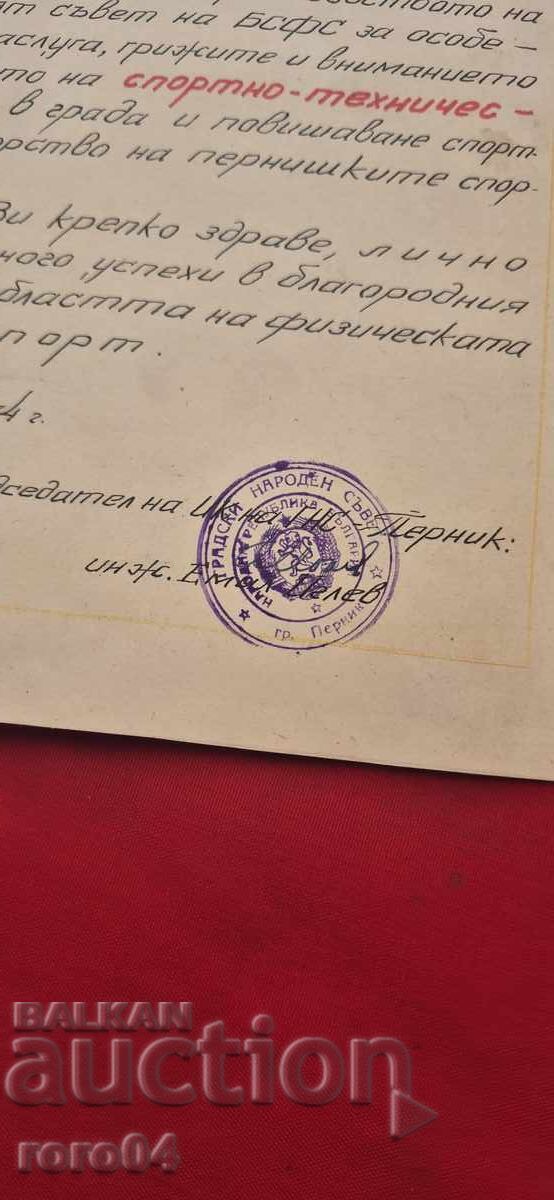 ят съвет на БСФС за особе-
аслуга, грижите и вниманието
то на спортно-техничес-
в града и повишаване спорт-
орство на пернишките спор-
Ви крепко здраве, лично
ного, успехи в благородния
бластта на физическата
порт.
4 г.
дседател на ИК на ГНС - Перник:
инж. Емил Пелев
ГРАДСКИ НАРОДЕН СЪВЕТ
НАРОДНА РЕПУБЛИКА БЪЛГАРИЯ
гр. Перник
BALKAN
auction
roro04